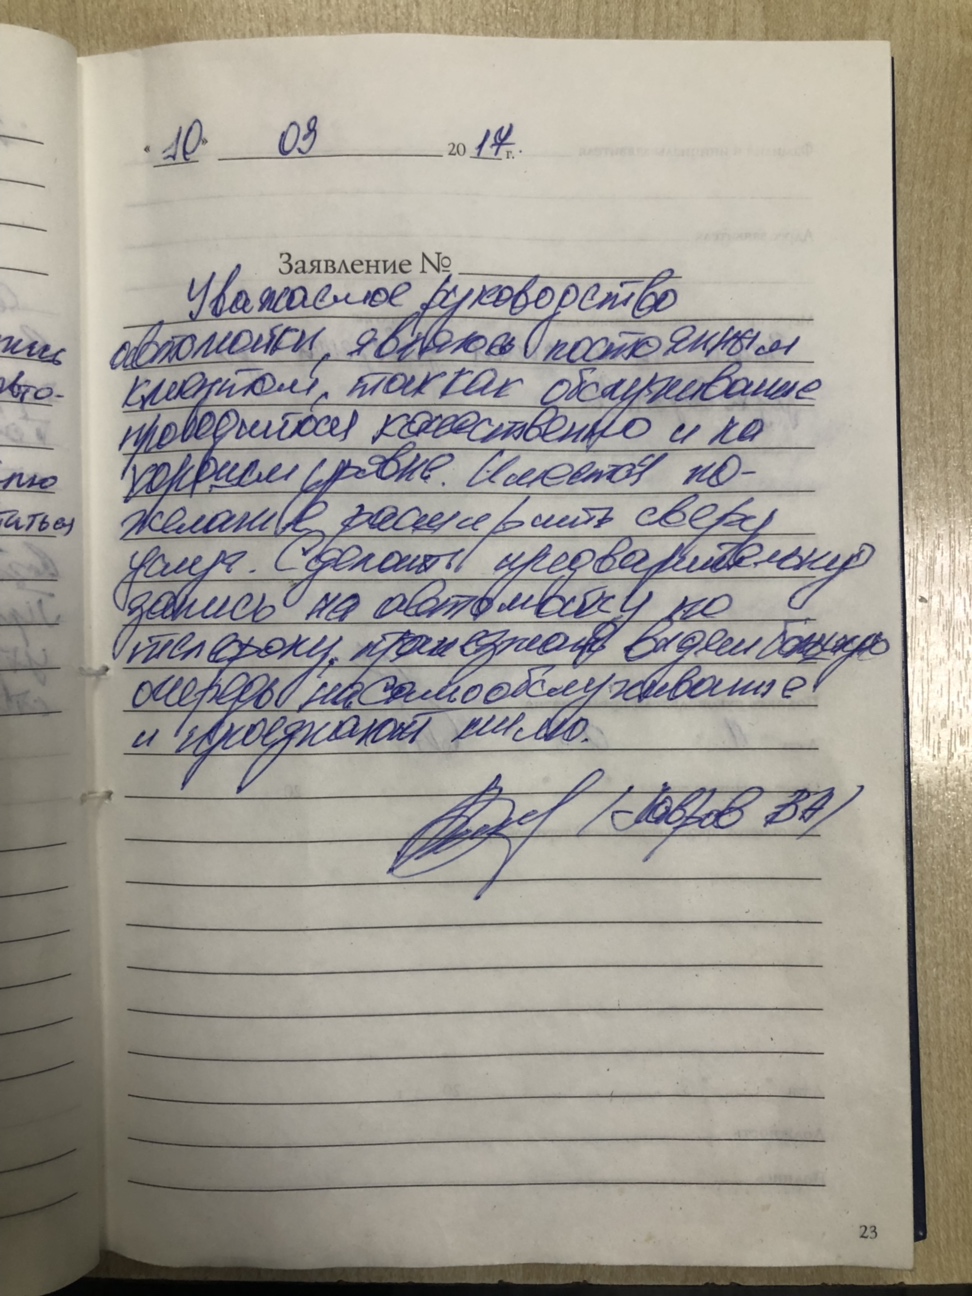 "10" 03 2017 г.
Заявление №
Уважаемое руководство
автомойки, являюсь постоянным
клиентом, так как обслуживание
проводится качественно и на
хорошем уровне. Имеется по-
желание расширить сферу
услуг. Сделать предварительную
запись на автомойку по
телефону, приезжая видем большую
очередь на самообслуживание
и проезжают мимо.
(Лавров ВА)
жись
авто-
титься
23